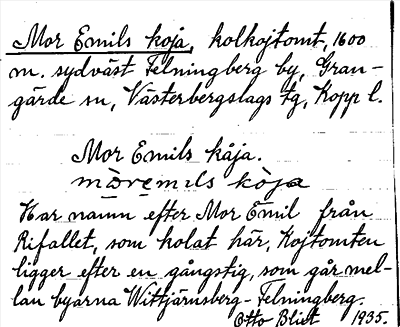 Mor Emils koja, kolkojtomt, 1600
m. sydväst Telningberg by, Gran-
gärde sn, Västerbergslags tg, Kopp l.
Mor Emils kåja.
mòremils kòja
Har namn efter Mor Emil från
Rifallet, som kolat här, Kojtomten
ligger efter en gångstig, som går mel-
lan byarna Wittjärnsberg-Telningberg.
Otto Blixt 1935.